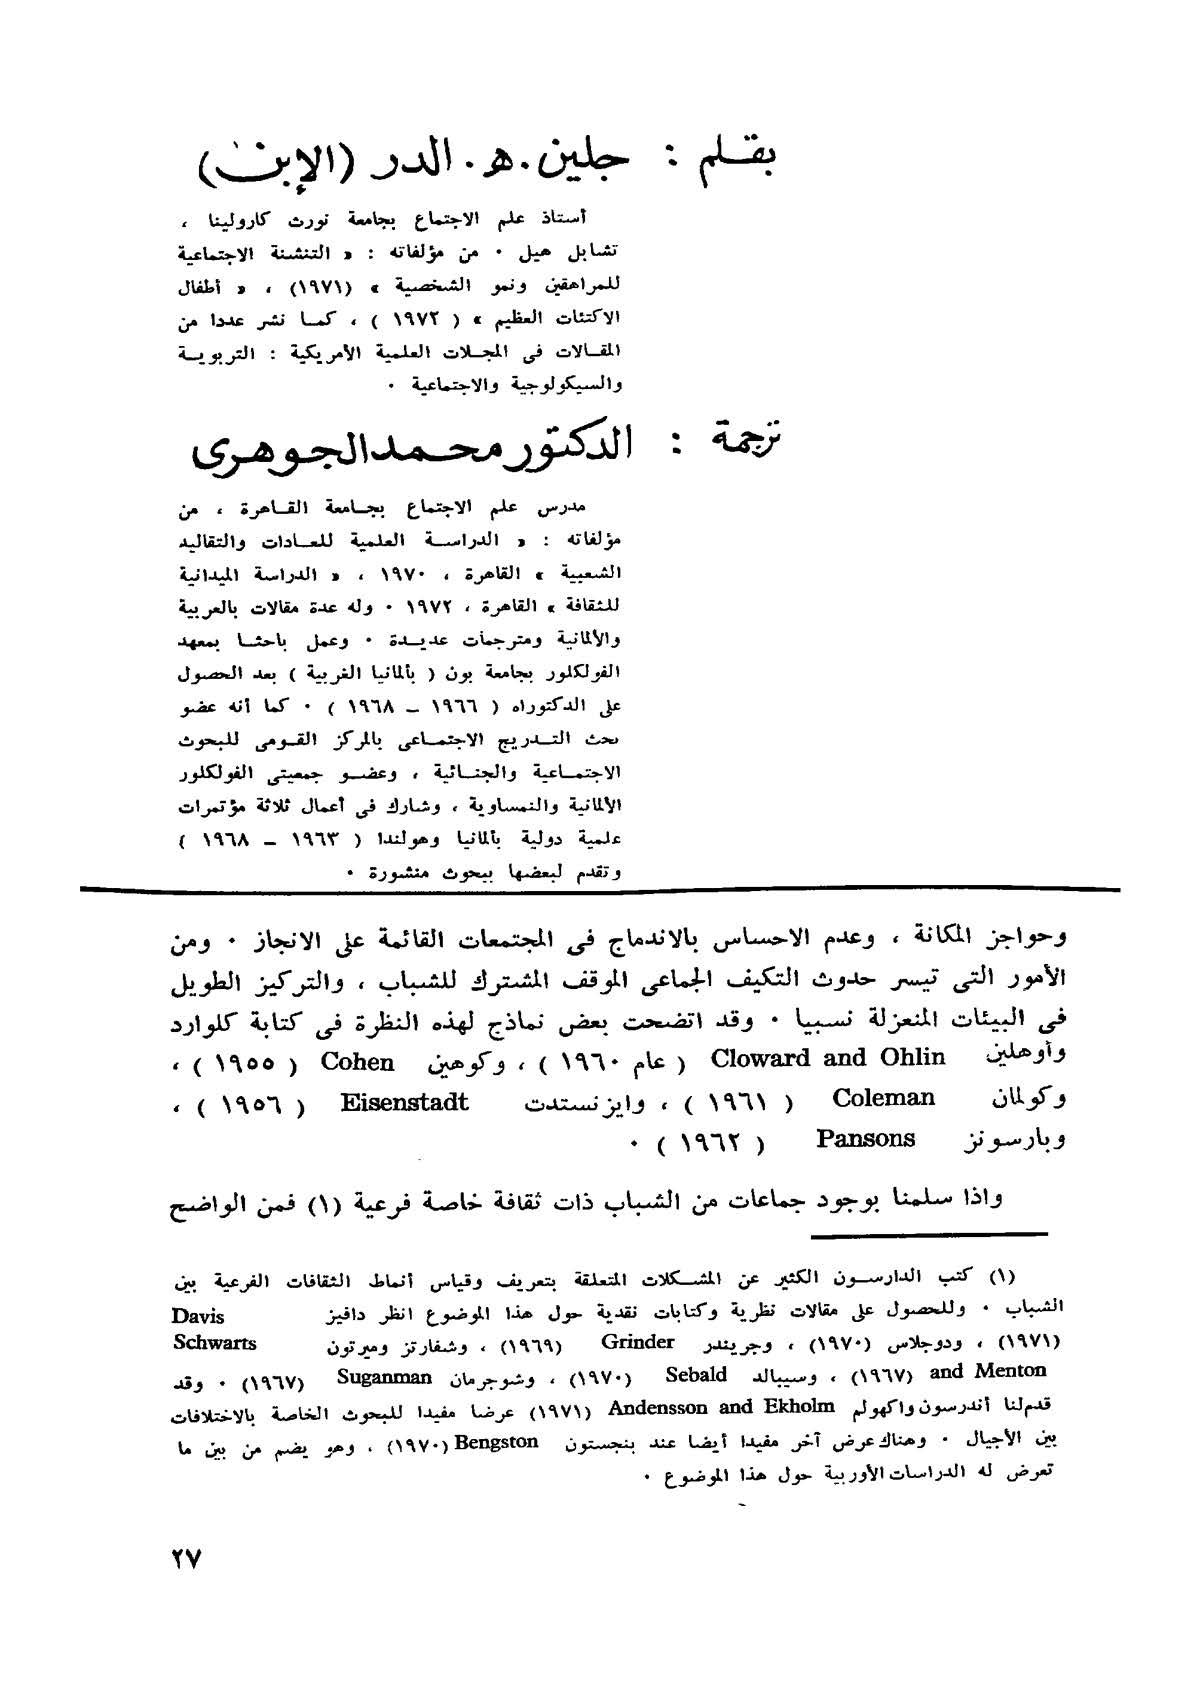 بقلم : جلين . ه . الدر (الإبن)
أستاذ علم الاجتماع بجامعة نورث كارولينا ،
تشابل هيل . من مؤلفاته : « التنشئة الاجتماعية
للمراهقين ونمو الشخصية » (١٩٧١) ، « أطفال
الاكتئاب العظيم » ( ١٩٧٢ ) ، كما نشر عددا من
المقالات فى المجلات العلمية الأمريكية : التربوية
والسيكولوجية والاجتماعية .
ترجمة : الدكتور محمد الجوهرى
مدرس علم الاجتماع بجامعة القاهرة ، من
مؤلفاته : « الدراسة العلمية للعادات والتقاليد
الشعبية » القاهرة ، ١٩٧٠ ، « الدراسة الميدانية
للثقافة » القاهرة ، ١٩٧٢ . وله عدة مقالات بالعربية
والألمانية ومترجمات عديدة . وعمل باحثا بمعهد
الفولكلور بجامعة بون ( بألمانيا الغربية ) بعد الحصول
على الدكتوراه ( ١٩٦٦ – ١٩٦٨ ) . كما أنه عضو
بحث التدريج الاجتماعى بالمركز القومى للبحوث
الاجتماعية والجنائية ، وعضو جمعيتى الفولكلور
الألمانية والنمساوية ، وشارك فى أعمال ثلاثة مؤتمرات
علمية دولية بألمانيا وهولندا ( ١٩٦٣ – ١٩٦٨ )
وتقدم لبعضها ببحوث منشورة .
وحواجز المكانة ، وعدم الاحساس بالاندماج فى المجتمعات القائمة على الانجاز . ومن
الأمور التى تيسر حدوث التكيف الجماعى الموقف المشترك للشباب ، والتركيز الطويل
فى البيئات المنعزلة نسبيا . وقد اتضحت بعض نماذج لهذه النظرة فى كتابة كلوارد
وأوهلين Cloward and Ohlin ( عام ١٩٦٠ ) ، وكوهين Cohen ( ١٩٥٥ ) ،
وكولمان Coleman ( ١٩٦١ ) ، وايزنستدت Eisenstadt ( ١٩٥٦ ) ،
وبارسونز Pansons ( ١٩٦٢ ) .
واذا سلمنا بوجود جماعات من الشباب ذات ثقافة خاصة فرعية (١) فمن الواضح
(١) كتب الدارسون الكثير عن المشكلات المتعلقة بتعريف وقياس أنماط الثقافات الفرعية بين
الشباب . وللحصول على مقالات نظرية وكتابات نقدية حول هذا الموضوع انظر دافيز Davis
(١٩٧١) ، ودوجلاس (١٩٧٠) ، وجريندر Grinder (١٩٦٩) ، وشفارتز وميرتون Schwarts
and Menton (١٩٦٧) ، وسيبالد Sebald (١٩٧٠) ، وشوجرمان Suganman (١٩٦٧) . وقد
قدم لنا أندرسون واكهولم Andensson and Ekholm (١٩٧١) عرضا مفيدا للبحوث الخاصة بالاختلافات
بين الأجيال . وهناك عرض آخر مفيدا أيضا عند بنجستون Bengston (١٩٧٠) ، وهو يضم من بين ما
تعرض له الدراسات الأوربية حول هذا الموضوع .
٢٧